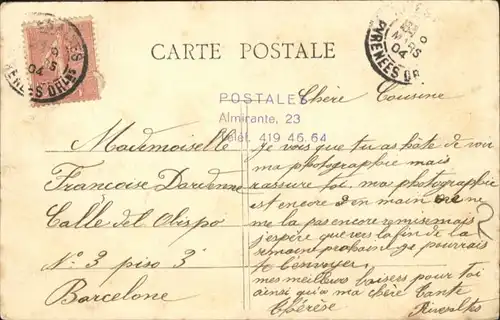 CARTE POSTALE
MARS
04
PYRENEES OR
POSTALES
Almirante, 23
Teléf. 419 46 64
Mademoiselle
Françoise Dardenne
Calle del Obispo
N° 3 piso 3
Barcelone
Chère Cousine
Je vois que tu as hate de voir
ma photographie mais
rassure toi, ma photographie
est encore en main on ne
me la pas encore remise mais
j'espère que vers la fin de la
semaine prochaine je pourrais
te l'envoyer.
mes meilleurs baisers pour toi
ainsi qu'a ma chère Tante
Thérèse Rivesaltes